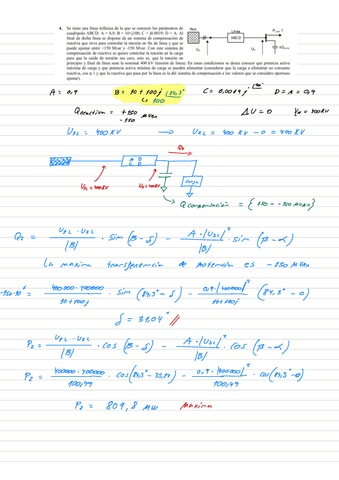 4. Se tiene una línea trifásica de la que se conocen los parámetros de
cuadripolo ABCD: A = 0,9; B = 10+j100; C = j0.0019; D = A. Al
final de dicha línea se dispone de un sistema de compensación de
reactiva que sirve para controlar la tensión en fin de línea y que se
puede ajustar entre +150 Mvar y -150 Mvar. Con este sistema de
compensación de reactiva se quiere controlar la tensión en la carga
para que la caída de tensión sea cero, esto es, que la tensión en
principio y final de línea sean la nominal 400 kV (tensión de línea). En estas condiciones se desea conocer que potencia activa
máxima de carga y que potencia activa mínima de carga se pueden alimentar (considerar que la carga a alimentar no consume
reactiva, cos φ 1 y que la reactiva que pasa por la línea es la del sistema de compensación a los valores que se considere oportuno
ajustar)
Línea
ABCD
A = 0.9 B = 10 + 100j (84.3° C = 0.0019j (90° D = A = 0,9
↳ 100
Q reactiva = +150 / -150 MVAr ΔU = 0
U2L = 400 KV → U2L = 400 KV - 0 = 400 KV
Q2
A B
C D
carga
Q compensación = {150 - -150 MVAr}
Q2 = U1L · U2L / |B| · sin (β - δ) - A · |U2L|² / |B| · sin (β - α)
La maxima transferencia de potencia es -150 MVAr
-150·10⁶ = 400000·400000 / 10+100j · sin (84,3° - δ) - 0,9·|400000|² / 10+100j (84,3° - 0)
δ = 33,04° //
P2 = U1L · U2L / |B| · cos (β - δ) - A · |U2L|² / |B| · cos (β - α)
P2 = 400000·400000 / 100,49 · cos (84,3° - 33,04) - 0,9·|400000|² / 100,49 · cos (84,3° - 0)
P2 = 809,8 MW maxima